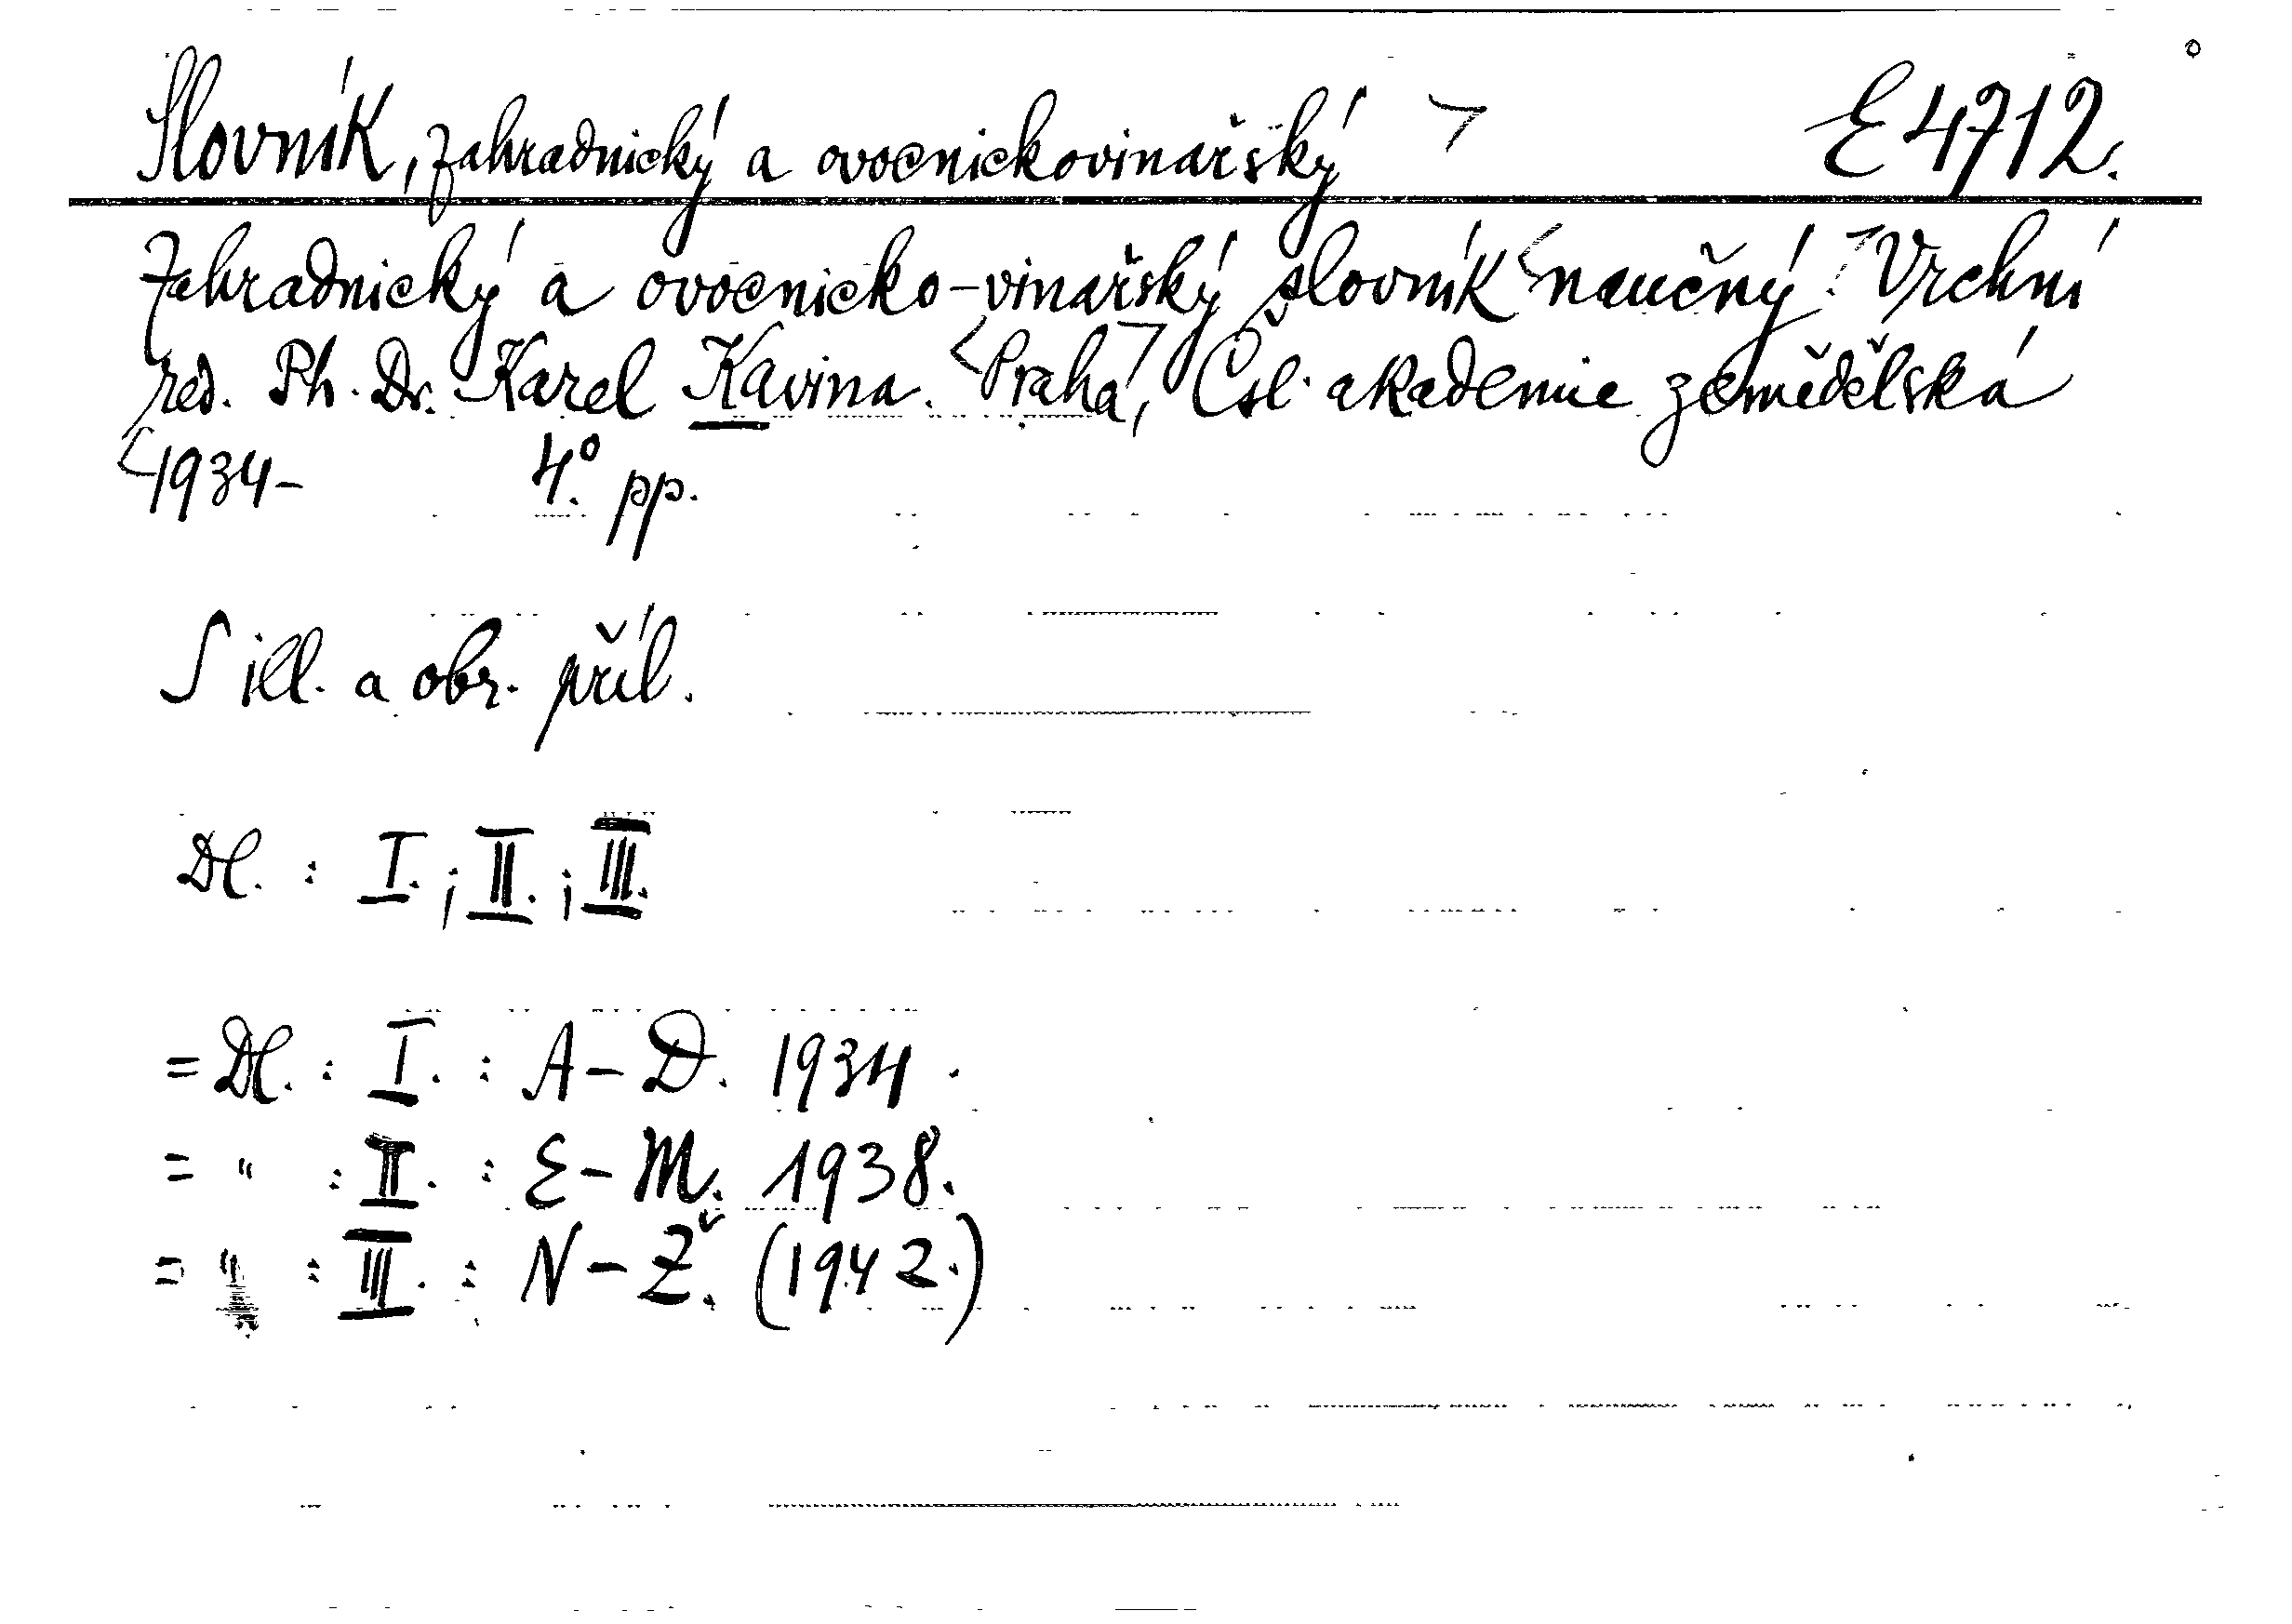 Slovník, zahradnický a ovocnickovinařský E 4712.
Zahradnický a ovocnicko-vinařský slovník naučný. Vrchní
red. Ph. Dr. Karel Kavina. Praha, Čsl. akademie zemědělská
1934- 4.° pp.
S ill. a obr. příl.
Dl. : I. ; II. ; III.
= Dl. : I. : A - D. 1934.
= " : II. : E - M. 1938.
= " : III. : N - Ž. (1942.)